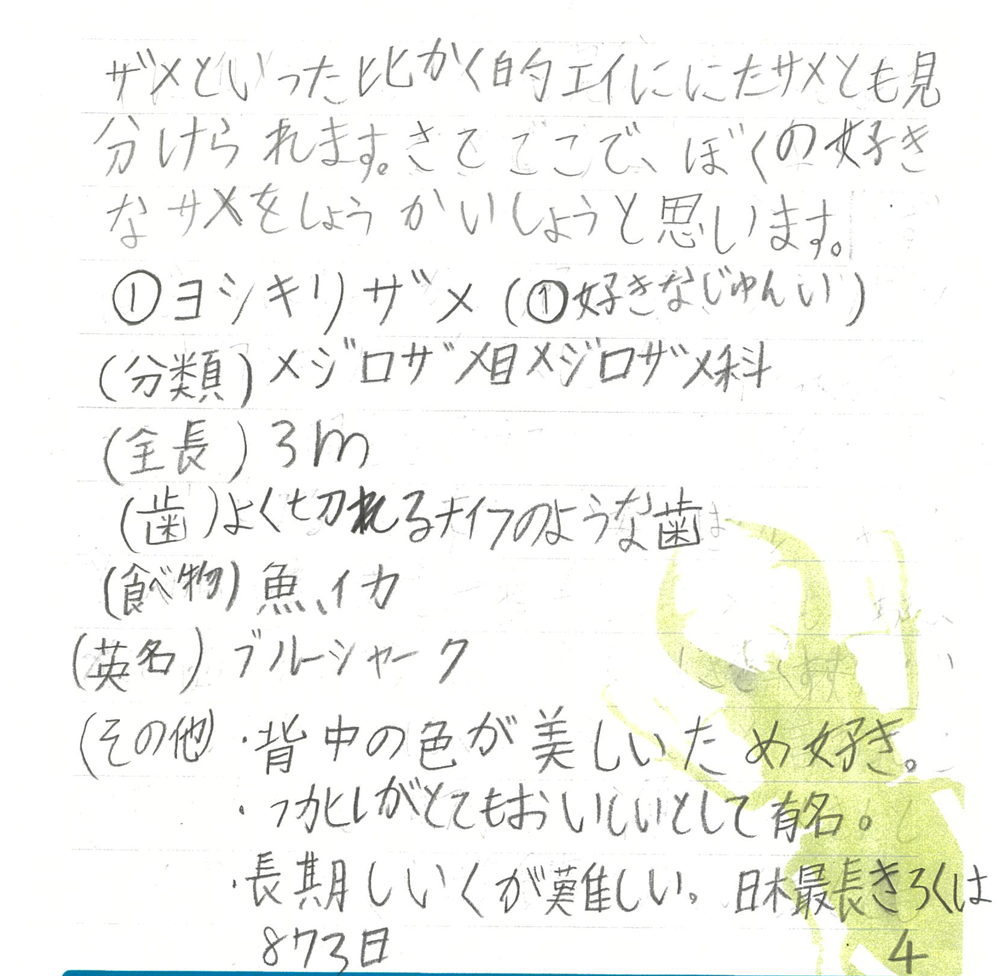 ザメといった比かく的エイににたサメとも見
分けられます。さてここで、ぼくの好き
なサメをしょうかいしようと思います。
①ヨシキリザメ(①好きなじゅんい)
(分類)メジロザメ目メジロザメ科
(全長)3m
(歯)よく切れるナイフのような歯
(食べ物)魚、イカ
(英名)ブルーシャーク
(その他)・背中の色が美しいため好き。
・フカヒレがとてもおいしいとして有名。
・長期しいくが難しい。日本最長きろくは
873日
4